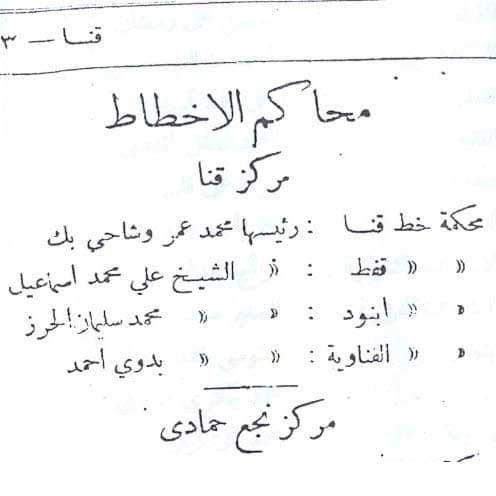 قنــا — ٣
محاكم الاخطاط
مركز قنا
محكمة خط قنــا : رئيسها محمد عمر وشاحي بك
» » قفط : » الشيخ علي محمد اسماعيل
» » ابنود : » » محمد سليمان الحرز
» » الفناوية : » » بدوي احمد
مركز نجع حمادى